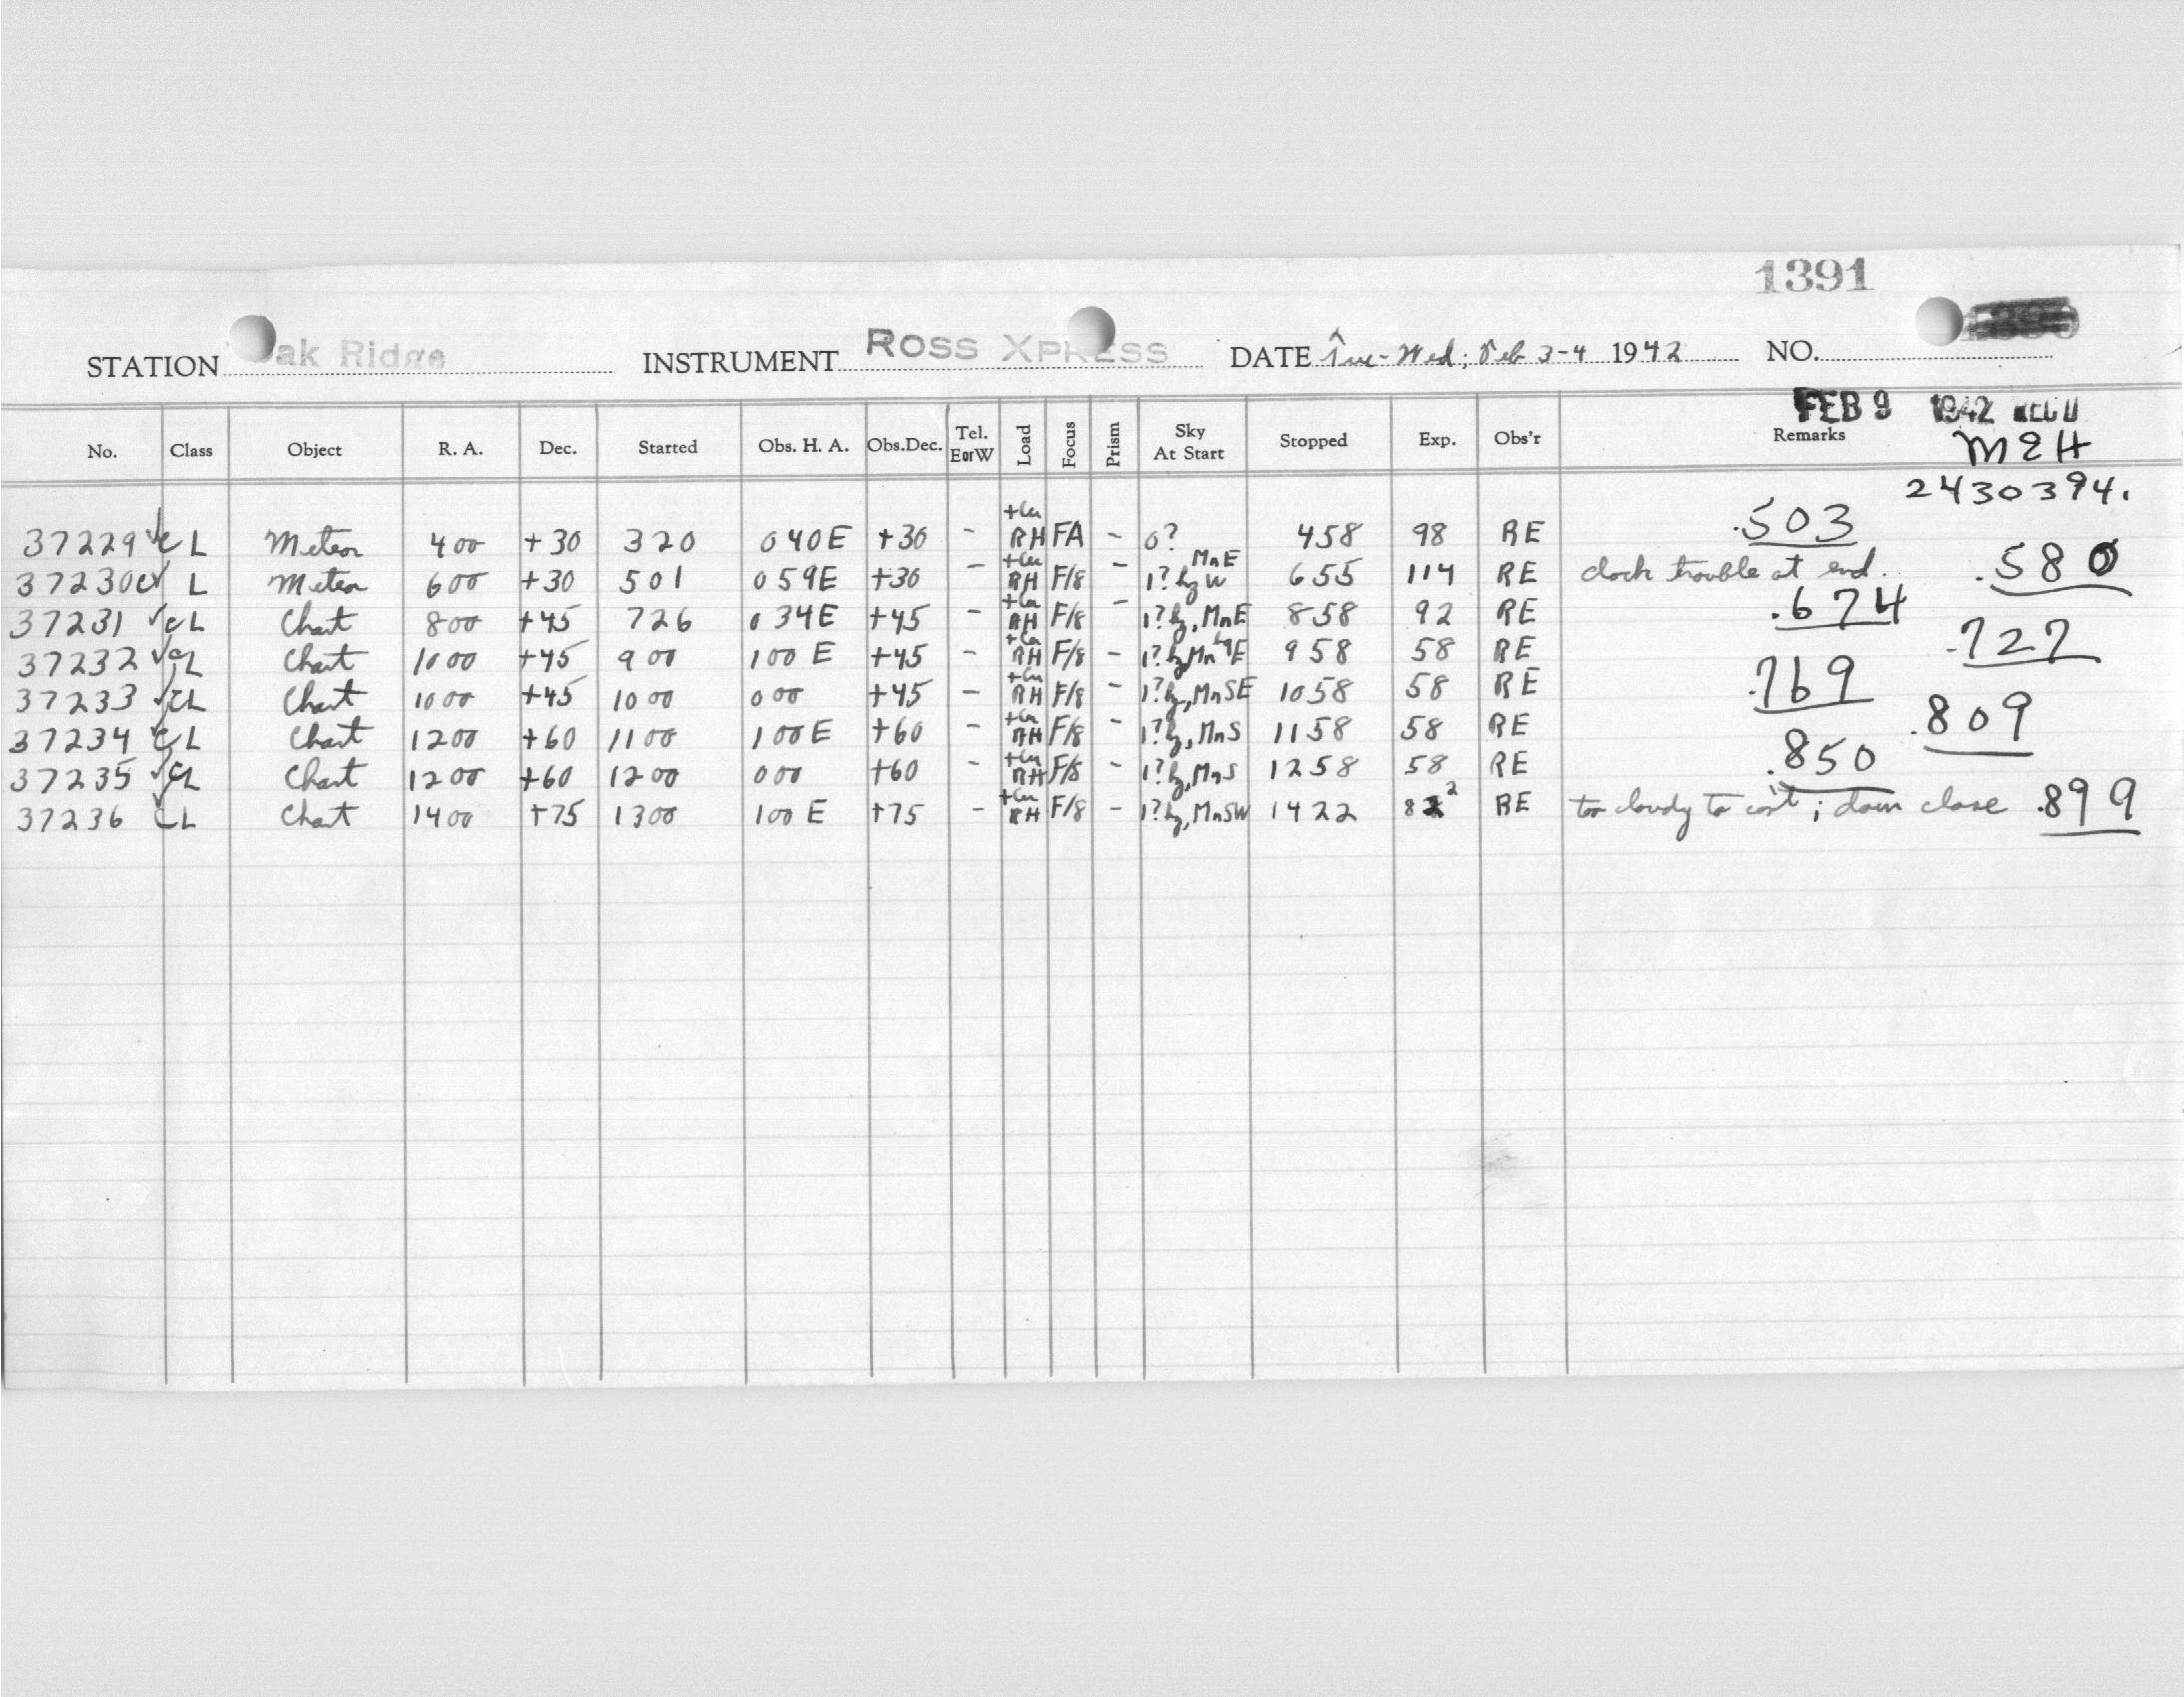 1391
STATION ak Ridge INSTRUMENT ROSS XPRESS DATE Tue-Wed; Feb 3-4 1942 NO.
FEB 9 1942 REC'D
No. Class Object R. A. Dec. Started Obs. H. A. Obs.Dec. Tel. EorW Load Focus Prism Sky At Start Stopped Exp. Obs'r Remarks
M&H
2430394.
37229 ✓ C L Meteor 4 00 +30 3 20 0 40 E +30 - RH FA - 0? 4 58 98 RE .503
37230 C ✓ L Meteor 6 00 +30 5 01 0 59 E +30 - RH F/8 - 1? hz W MnE 6 55 114 RE clock trouble at end. .580
37231 ✓ C L Chart 8 00 +45 7 26 0 34 E +45 - RH F/8 - 1? hz, MnE 8 58 92 RE .674
37232 ✓ C L Chart 10 00 +45 9 00 1 00 E +45 - RH F/8 - 1? hz MnE 9 58 58 RE .727
37233 ✓ C L Chart 10 00 +45 10 00 0 00 +45 - RH F/8 - 1? hz, MnSE 10 58 58 RE .769
37234 ✓ C L Chart 12 00 +60 11 00 1 00 E +60 - RH F/8 - 1? hz, MnS 11 58 58 RE .809
37235 ✓ C L Chart 12 00 +60 12 00 0 00 +60 - RH F/8 - 1? hz, MnS 12 58 58 RE .850
37236 ✓ C L Chart 14 00 +75 13 00 1 00 E +75 - RH F/8 - 1? hz, MnSW 14 22 82 RE too cloudy to cont; dawn close .899